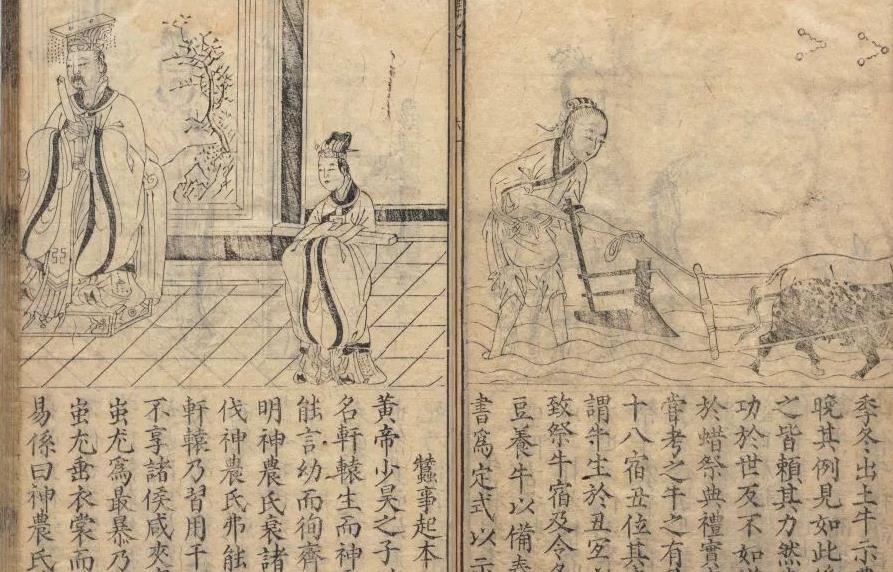 季冬出土牛示
晚其例見如此
之皆賴其力然
功於世反不如
於蜡祭典禮實
嘗考之牛之有
十八宿丑位其
謂牛生於丑宜
致祭牛宿及令
豆養牛以備春
書爲定式以示
蠶事起本
黃帝少昊之子
名軒轅生而神
能言幼而徇齊
明神農氏衰諸
伐神農氏弗能
軒轅乃習用干
不享諸侯咸來
蚩尤爲最暴乃
蚩尤垂衣裳而
易係曰神農氏